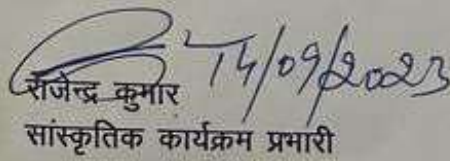 14/09/2023
राजेन्द्र कुमार
सांस्कृतिक कार्यक्रम प्रभारी